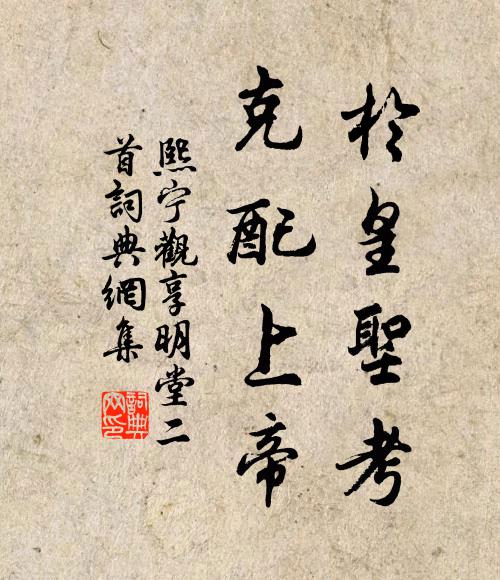 於皇聖考
克配上帝
熙宁觀享明堂二
首詞典網集
詞典网印